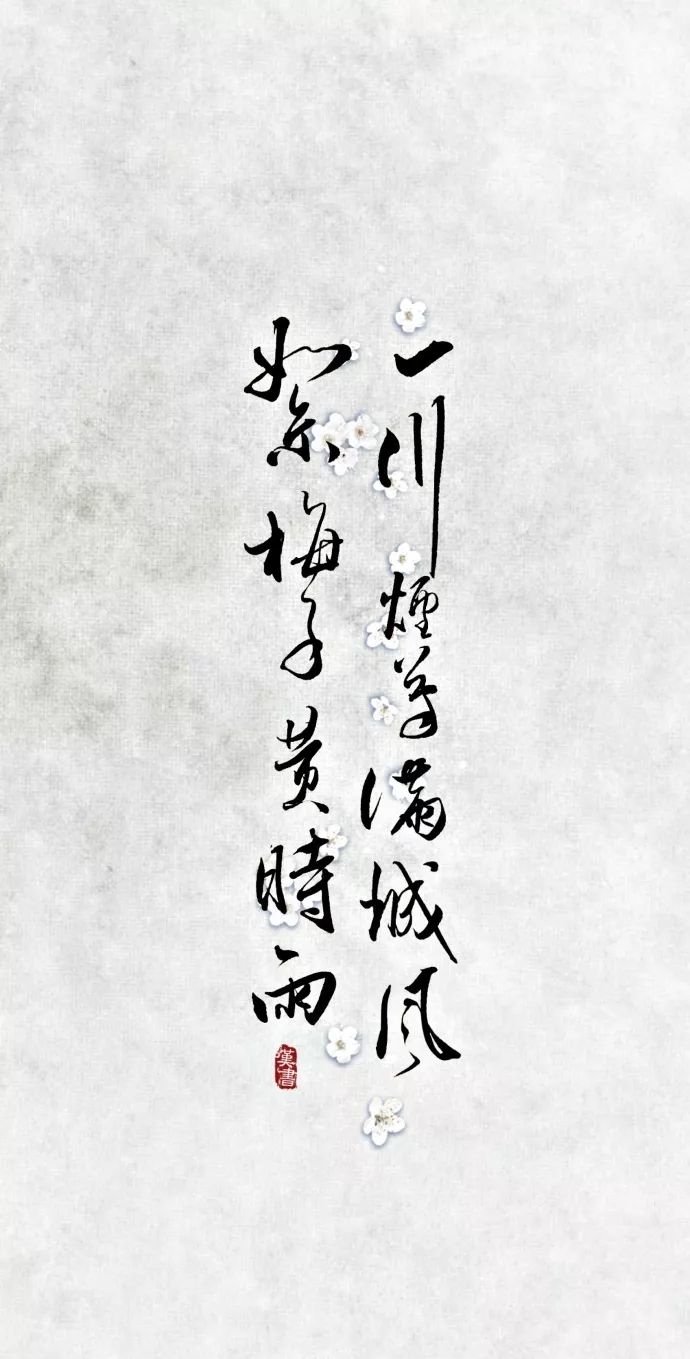 一川煙草滿城風
絮梅子黃時雨
漢書